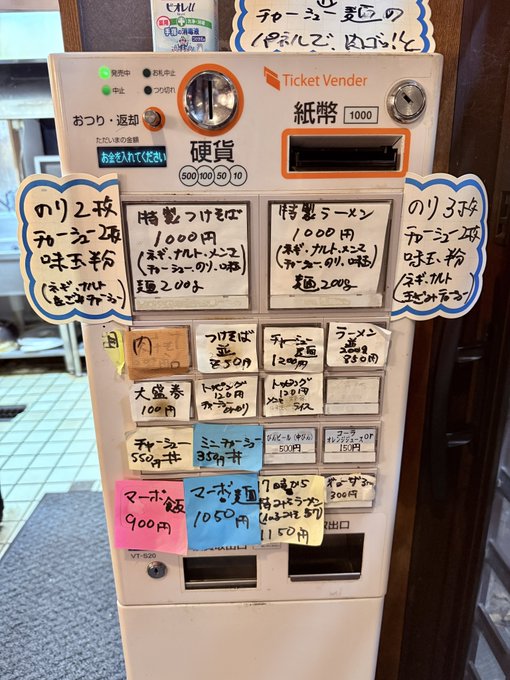 ビオレu
手指の消毒液
チャーシュー麺の
パネルで、肉ゴッ!と
発売中
お札中止
中止
つり切れ
Ticket Vender
おつり・返却
紙幣
1000
ただいまの金額
お金を入れてください
硬貨
500 100 50 10
のり2枚
チャーシュー2枚
味玉
(ネギ、ナルト
チャーシュー)
特製つけそば
1000円
(ネギ・ナルト、メンマ
チャーシュー、のり、味玉)
麺200g
特製ラーメン
1000円
(ネギ、ナルト、メンマ
チャーシュー、のり、味玉)
麺200g
のり3枚
チャーシュー2枚
味玉
(ネギ、ナルト
チャーシュー)
肉
つけそば
並
850円
チャーシュー
麺
1200円
ラーメン
並
200g
850円
大盛券
100円
トッピング
120円
チャーシュー
orのり
トッピング
120円
ライス
チャーシュー
550円丼
ミニチャーシュー
350円丼
びんビール(中びん)
500円
コーラ
オレンジジュースor
150円
マーボ飯
900円
マーボ麺
1050円
7時から
1150円
300円
取出口
VT-S20